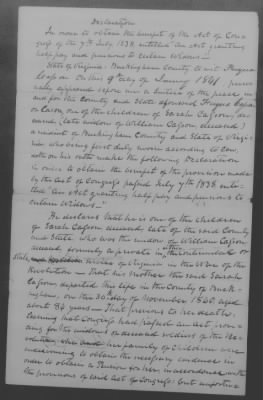 Declaration
In order to obtain the benefit of the Act of Con-
gress of the 7th July 1838, entitled "An Act granting
half pay and pensions to certain widows"
State of Virginia, Buckingham County to wit:
On this 9th day of January 1841 perso-
nally appeared before me a Justice of the peace in
and for the County and State aforesaid
Cason, one of the children of Sarah Cason, decea-
sed, (late widow of William Cason, deceased)
a resident of Buckingham County and State of Virgin-
ia who being first duly sworn according to law
doth on his oath make the following Declaration
in order to obtain the benefit of the provision made
by the act of Congress passed July 7th 1838 enti-
tled "An act granting half pay and pensions to
certain widows"
He declares that he is one of the children
of Sarah Cason deceased, late of the said County
and State. Who was the widow of William Cason
deceased, formerly a private in the
State of Virginia in the War of the
Revolution — That his Mother the said Sarah
Cason departed this life in the County of Buck-
ingham, on the day of November 1840 aged
about 84 years — That previous to her death
learning that Congress had passed an act provi-
ding for the widows of deceased soldiers of the Re-
volution, her family of Children were
endeavouring to obtain the necessary evidence in
order to obtain a Pension for her in accordance with
the provisions of said Act of Congress: but